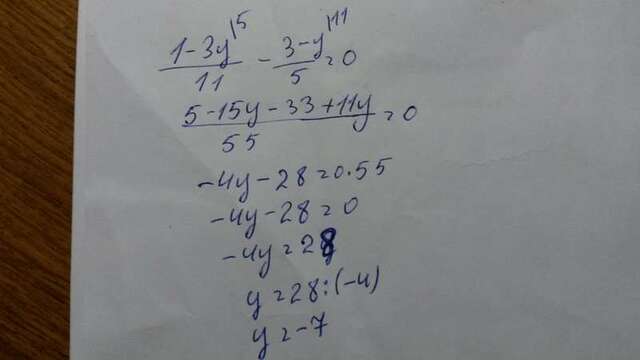 (1-3y)/11 |5 - (3-y)/5 |11 = 0
(5-15y-33+11y)/55 = 0
-4y-28=0·55
-4y-28=0
-4y=28
y=28:(-4)
y=-7